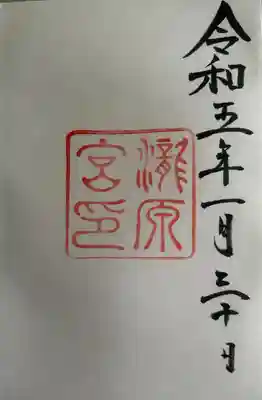 令和五年一月三十日
瀧原
宮印